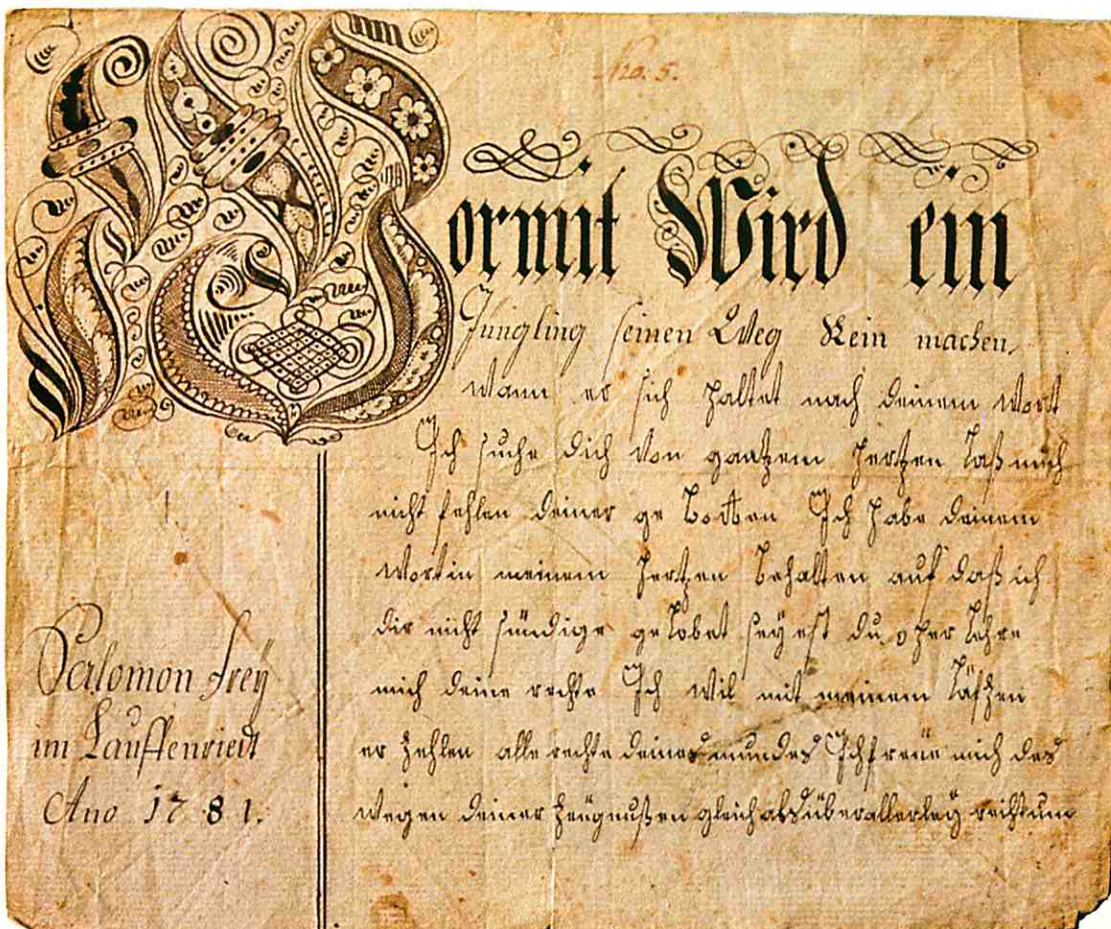 No. 5.
Wormit Wird ein
Jüngling seinen Weg Rein machen,
wann er sich haltet nach deinem wort
Ich suche dich von gantzem hertzen laß mich
nicht fehlen deiner ge botten Ich habe deinem
wort in meinem hertzen behalten auf daß ich
dir nicht sündige gelobet seyest du o her lehre
mich deine rechte Ich wil mit meinem läftzen
er zehlen alle rechte deines mundes Ich freüe mich des
wegen deiner zeügnußen gleich als über allerley reichtum
Salomon Frey
im Lauffenriedt
Ano 1781.